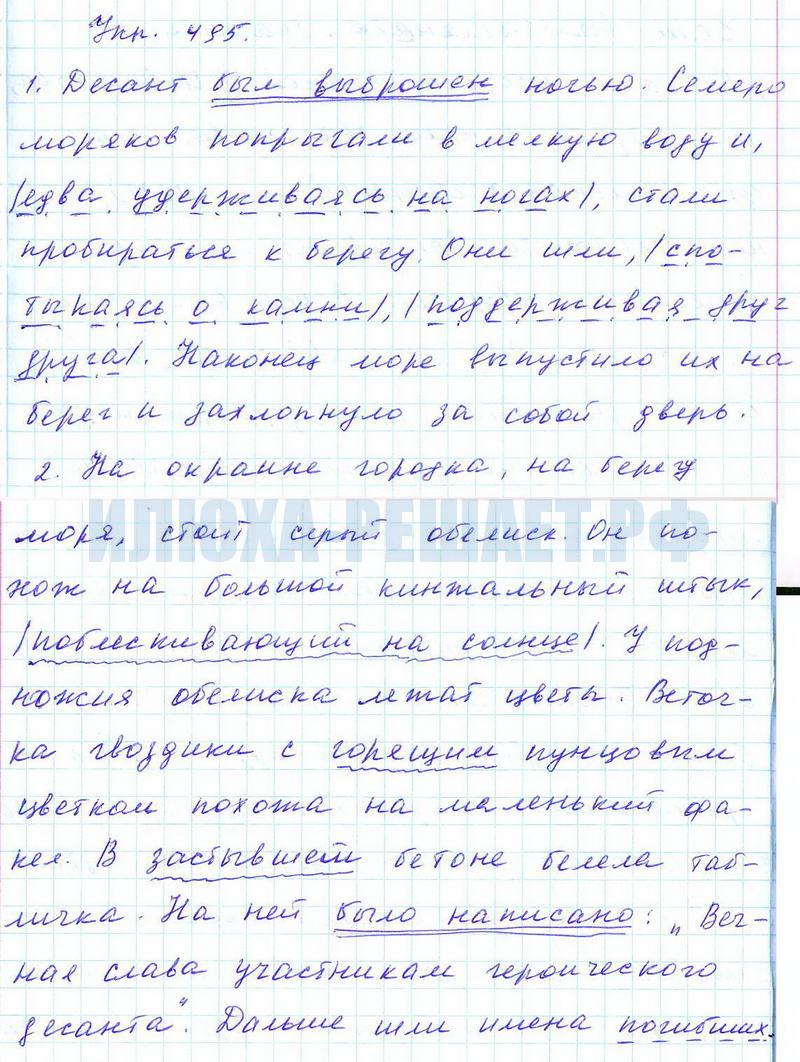 Упр. 495.
1. Десант был выброшен ночью. Семеро
моряков попрыгали в мелкую воду и,
|едва удерживаясь на ногах|, стали
пробираться к берегу. Они шли, |спо-
тыкаясь о камни|, |поддерживая друг
друга|. Наконец море выпустило их на
берег и захлопнуло за собой дверь.
2. На окраине городка, на берегу
ИЛЮХА-РЕШАЕТ.РФ
моря, стоит серый обелиск. Он по-
хож на большой кинжальный штык,
|поблескивающий на солнце|. У под-
ножия обелиска лежат цветы. Веточ-
ка гвоздики с горящим пунцовым
цветком похожа на маленький фа-
кел. В застывшем бетоне белела таб-
личка. На ней было написано: „Веч-
ная слава участникам героического
десанта". Дальше шли имена погибших.